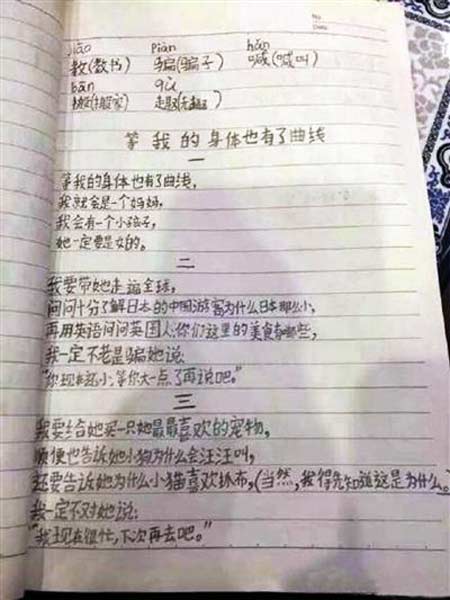 jiāo piàn hǎn
教(教书) 骗(骗子) 喊(喊叫)
bān qù
搬(搬家) 趣(无趣)
等我的身体也有了曲线
一
等我的身体也有了曲线,
我就会是一个妈妈,
我会有一个小孩子,
她一定要是女的。
二
我要带她走遍全球,
问问十分了解日本的中国游客为什么日本那么小,
再用英语问问英国人:你们这里的美食有哪些,
我一定不老是骗她说:
"你现在还小,等你大一点了再说吧。"
三
我要给她买一只她最最喜欢的宠物,
顺便也告诉她小狗为什么会汪汪叫,
还要告诉她为什么小猫喜欢抓布,(当然,我得先知道这是为什么。
我一定不对她说:
"我现在很忙,下次再去吧。"